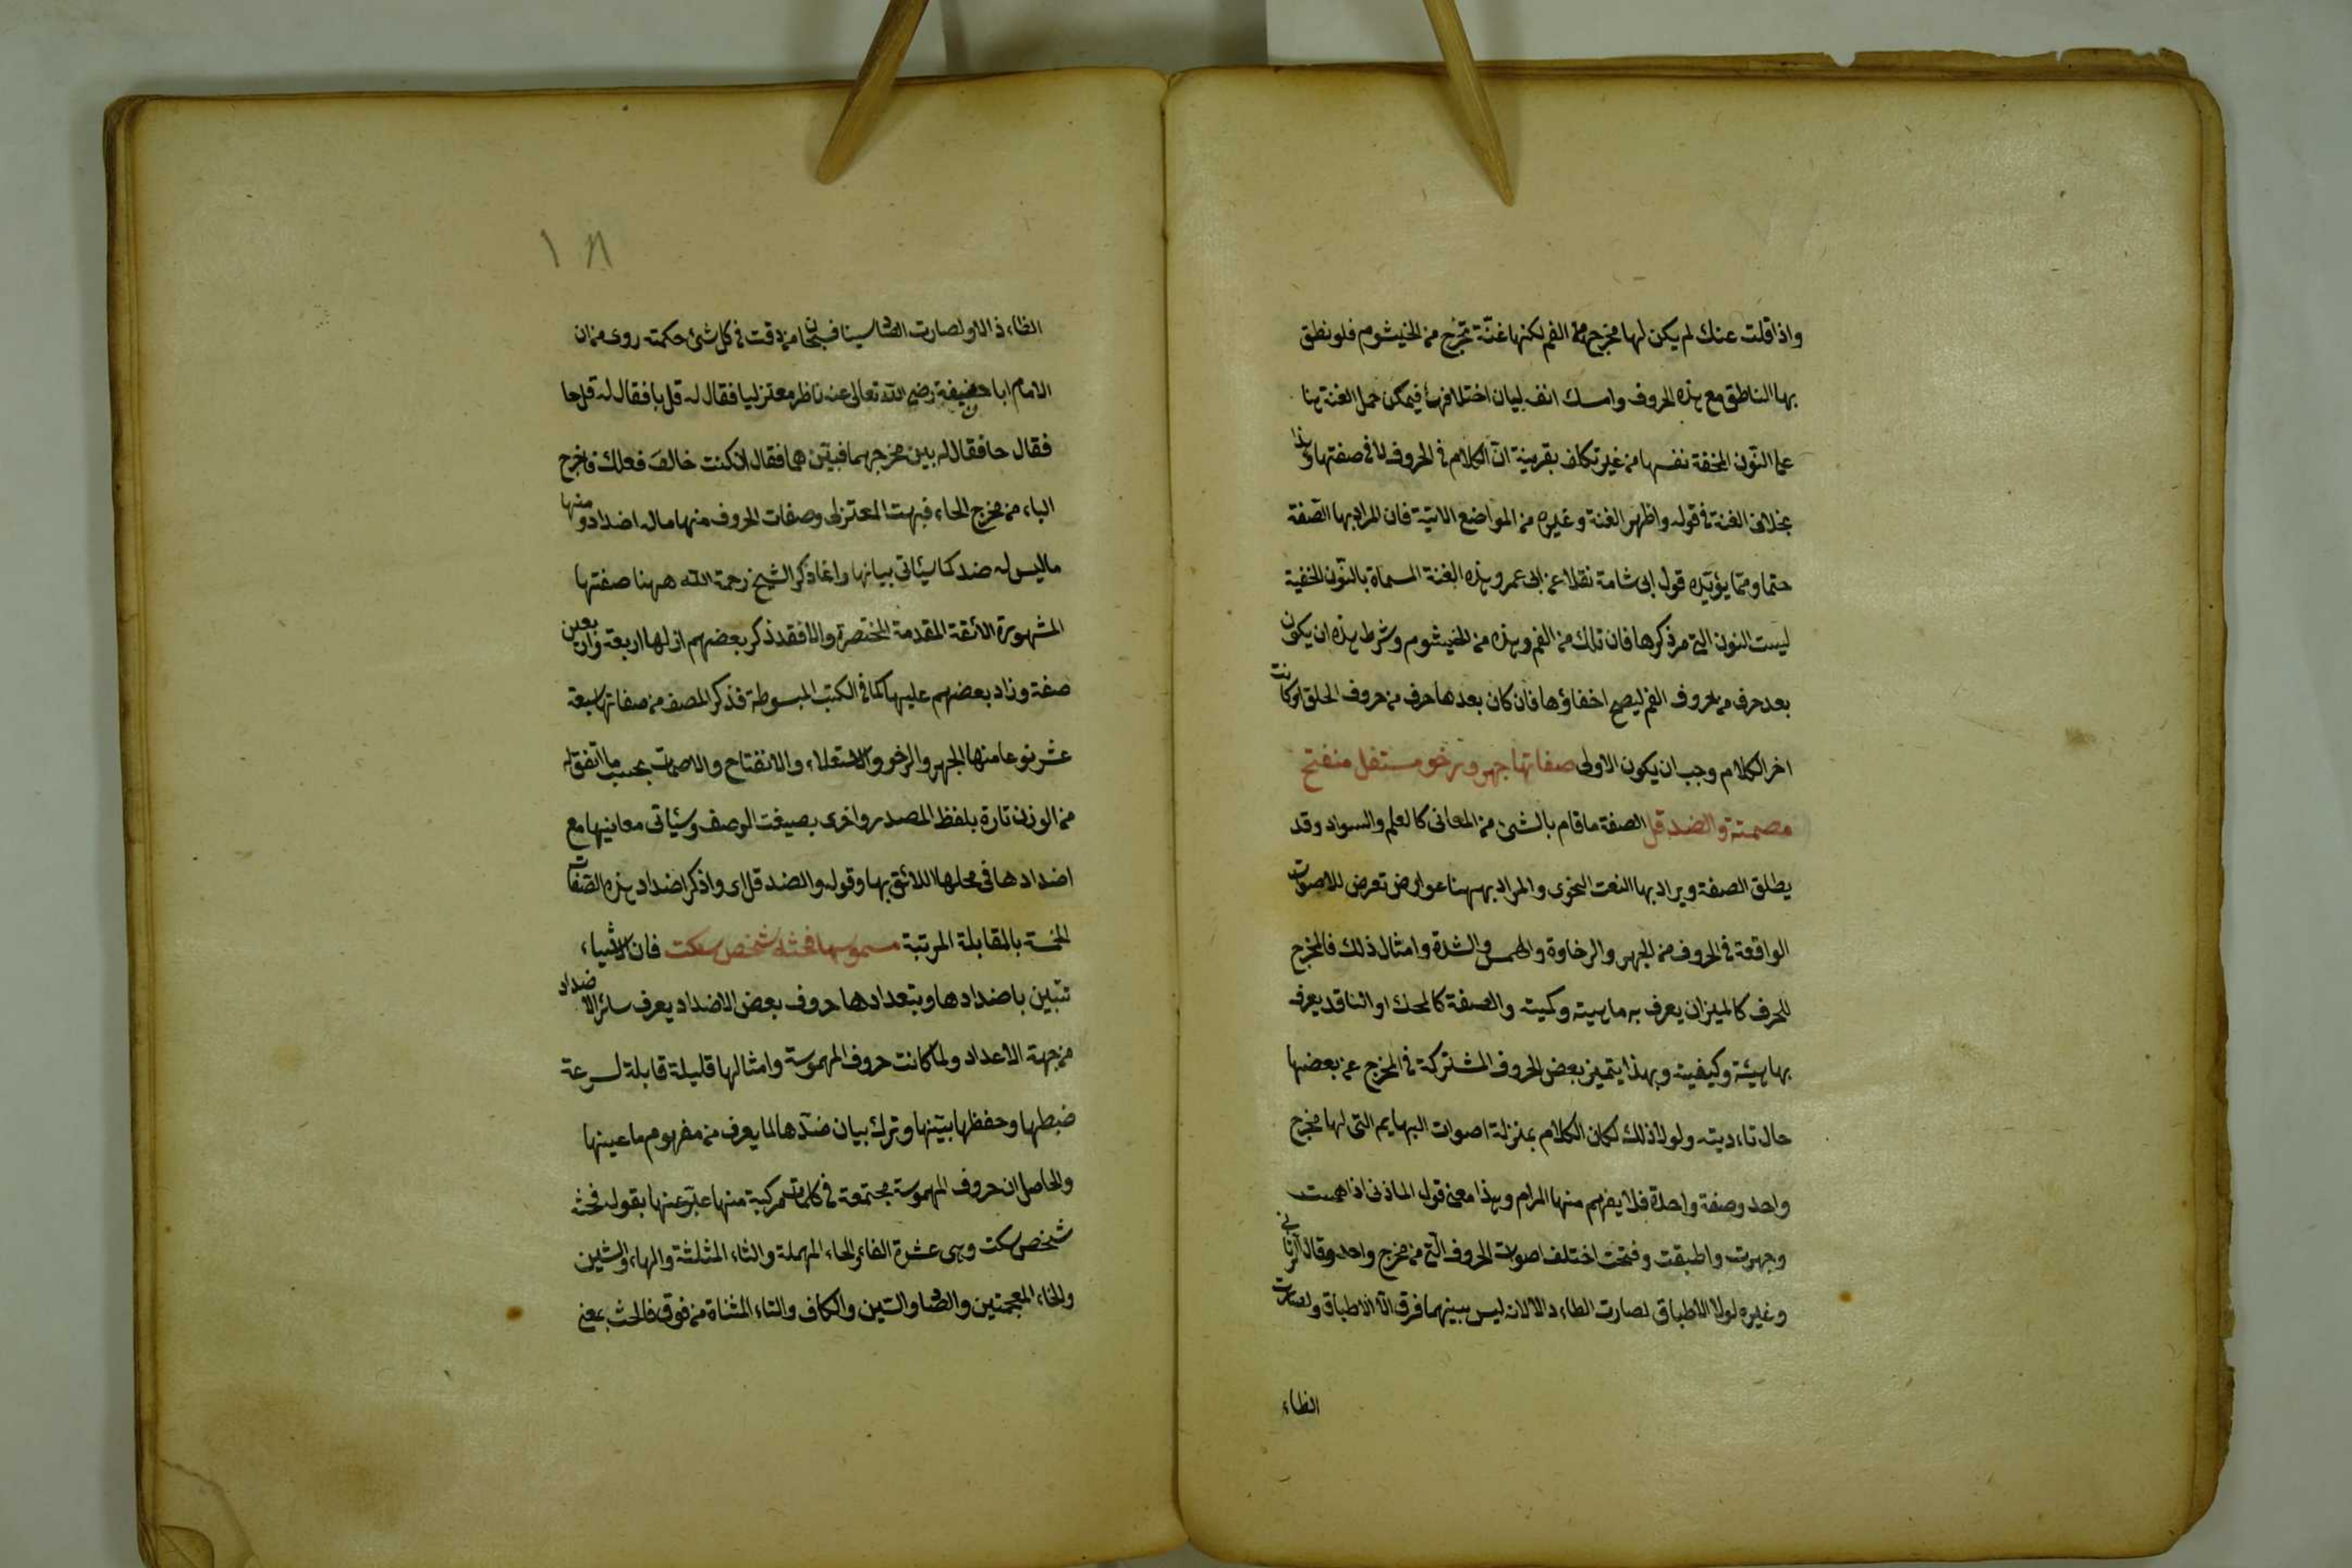 واذا قلت عنك لم يكن لها مخرج من الفم لكنها غنّة تخرج من الخيشوم فلو نطق
بها الناطق مع هذه الحروف وامسك انفه لبان اختلافها فيمكن حمل الغنة هنا
على النّون المخفة نفسها من غير تكلف بقرينة انّ الكلام في الحروف لا في صفتها وهذا
بخلاف الغنة في قوله واظهر الغنة وغيره من المواضع الاتيّة فان المراد بها الصّفة
حتما وممّا يؤيّده قول ابى شامة نقلا عن ابى عمرو هذه الغنة المسماة بالنّون الخفية
ليست النون التى مر ذكرها فان تلك من الفم وهذه من الخيشوم وشرط هذه ان يكون
بعد حرف من حروف الفم ليصح اخفاؤها فان كان بعدها حرف من حروف الحلق او كانت
اخر الكلام وجب ان يكون الاولى صفاتها جهر ورخو مستفل منفتح
مصمتة والضد قل الصفة ما قام بالشئ من المعانى كالعلم والسواد وقد
يطلق الصفة ويراد بها النعت النحوى والمراد بها ههنا عوارض تعرض للاصوات
الواقعة في الحروف من الجهر والرخاوة والهمس والشدة وامثال ذلك فالمخرج
للحرف كالميزان يعرف به ماهيته وكميته والصفة كالمحك او الناقد يعرف
بها هيئة وكيفيته وبهذا يتميز بعض الحروف المشتركة في المخرج عن بعضها
حال تاءديته ولولا ذلك لكان الكلام بمنزلة اصوات البهايم التى لها مخرج
واحد وصفة واحدة فلا يفهم منها المرام وهذا معنى قول المازنى اذا همست
وجهرت واطبقت وفتحت اختلف اصوات الحروف الّتى من مخرج واحد وقال الرّمانى
وغيره لولا الاطباق لصارت الطاء دالا لانه ليس بينهما فرق الّا الاطباق ولصارت
الظاء
الظاء ذالا ولصارت الصّاد سينا فسبحان من دقت في كل شئ حكمته روى من ان
الامام ابا حنيفة رضى الله تعالى عنه ناظر معتزليا فقال له قل با فقال له قل حا
فقال حا فقال له بين مخرجهما فبيّن هما فقال ان كنت خالق فعلك فاخرج
الباء من مخرج الحاء فبهت المعتزلى وصفات الحروف منها ماله اضداد ومنها
ماليس له ضد كما سيأتى بيانها وانما ذكر الشيخ رحمة الله ههنا صفتها
المشهورة الائقة المقدمة المختصرة والا فقد ذكر بعضهم ان لها اربعة واربعين
صفة وزاد بعضهم عليها كما في الكتب المبسوطة فذكر المصنف من صفاتها سبعة
عشر نوعا منها الجهر والرخو والاستعلاء والانفتاح والاصمات بحسب ما اتفق له
من الوزن تارة بلفظ المصدر واخرى بصيغت الوصف وسيأتى معانيها مع
اضدادها في محلها اللائق بها وقوله والضد قل اى واذكر اضداد هذه الصّفات
الخمسة بالمقابلة المرتبة مهموسها فحثه شخص سكت فان الاشياء
تتبين باضدادها وبتعدادها حروف بعض الاضداد يعرف سائر الاضداد
من جهة الاعداد ولما كانت حروف المهموسة وامثالها قليلة قابلة لسرعة
ضبطها وحفظها بيّنها وترك بيان ضدّها لما يعرف من مفهوم ما عينها
والحاصل ان حروف المهموسة مجتمعة في كلمات مركبة منها عبّر عنها بقوله فحثه
شخص سكت وهى عشرة الفاء والحاء المهملة والثاء المثلثة والهاء والشين
والخاء المعجمتين والصّاد والسّين والكاف والتاء المثناة من فوق فالحث بمعنى